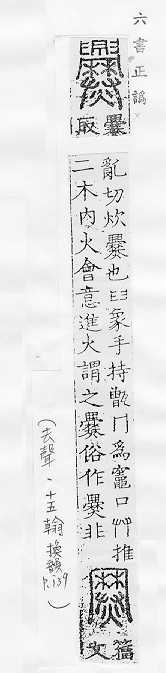 六書正譌
爨
取
亂切炊爨也𦥑象手持甑冂爲竈口艸推
二木內火會意進火謂之爨俗作爨非
籀
文
(去聲、十五翰換韻 P.139)